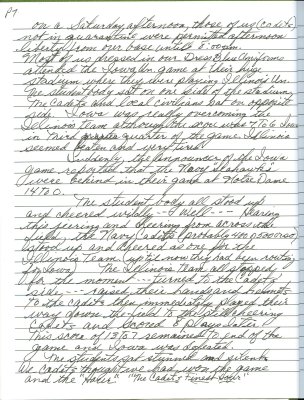 P7
on a Saturday afternoon, those of us (cadets)
not in quarantine were permitted afternoon
liberty from our base until 8:00 pm.
Most of us dressed in our Dress Blue Uniforms
attended the Iowa game at their
stadium where they were playing Illinois Un.
The student body sat on one side of the stadium,
the Cadets and local civilians sat on opposite
side. Iowa was really overcoming the
Illinois Team although the score was 7 to 6 Iowa
in third quarter of the game Illinois
seemed beaten and very tired.
Suddenly, the announcer of the Iowa
game reported that the Navy Seahawks
were behind in their game at Notre Dame
14 to 0.
The student body all stood up
and cheered wildly -- Well --- Hearing
this jeering and cheering from across the
field, the Navy Cadets (probably 400 or so)
stood up and cheered as one for the
Illinois team (up til now they had been rooting
for Iowa) The Illinois Team all stopped
for the moment --- turned to the Cadets
side --- raised their hands and helmets
to the cadets then immediately played their
way down the field to the still cheering
Cadets and scored 8 plays later!
This score of 13 to 7 remained to end of the
game and Iowa was defeated.
The students sat stunned and silent.
We cadets thought we had won the game
and the "Hater" "The Cadets Finest Hour"